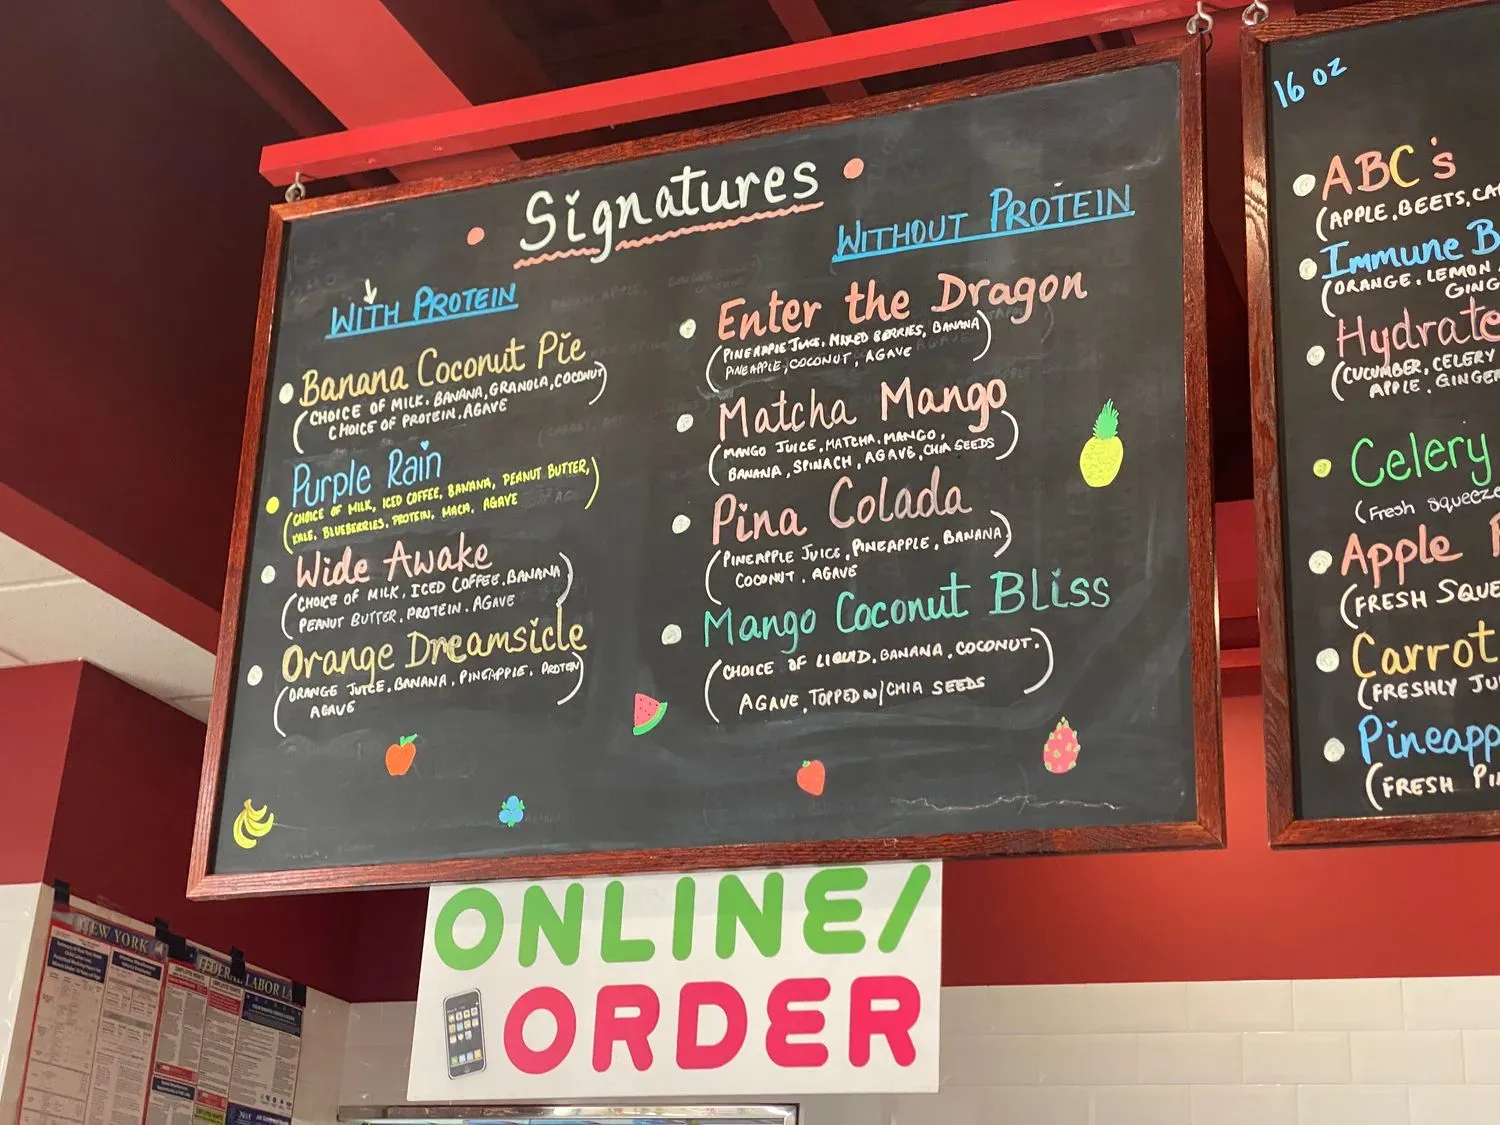 Signatures
WITH PROTEIN
Banana Coconut Pie
(CHOICE OF MILK, BANANA, GRANOLA, COCONUT
CHOICE OF PROTEIN, AGAVE)
Purple Rain
(CHOICE OF MILK, ICED COFFEE, BANANA, PEANUT BUTTER,
KALE, BLUEBERRIES, PROTEIN, MACA, AGAVE)
Wide Awake
(CHOICE OF MILK, ICED COFFEE, BANANA
PEANUT BUTTER, PROTEIN, AGAVE)
Orange Dreamsicle
(ORANGE JUICE, BANANA, PINEAPPLE, PROTEIN
AGAVE)
WITHOUT PROTEIN
Enter the Dragon
(PINEAPPLE JUICE, MIXED BERRIES, BANANA
PINEAPPLE, COCONUT, AGAVE)
Matcha Mango
(MANGO JUICE, MATCHA, MANGO,
BANANA, SPINACH, AGAVE, CHIA SEEDS)
Pina Colada
(PINEAPPLE JUICE, PINEAPPLE, BANANA,
COCONUT, AGAVE)
Mango Coconut Bliss
(CHOICE OF LIQUID, BANANA, COCONUT,
AGAVE, TOPPED W/CHIA SEEDS)
16 OZ
ABC's
(APPLE, BEETS,
Immune
(ORANGE, LEMON
Hydrate
(CUCUMBER, CELERY
APPLE, GINGER
Celery
(Fresh
Apple
(FRESH
Carrot
(FRESHLY
(FRESH
ONLINE/
ORDER
NEW YORK
FEDERAL LABOR